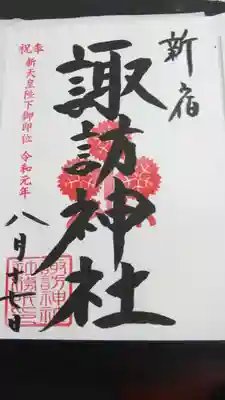 新宿
諏訪神社
奉祝 新天皇陛下御即位 令和元年
八月十七日